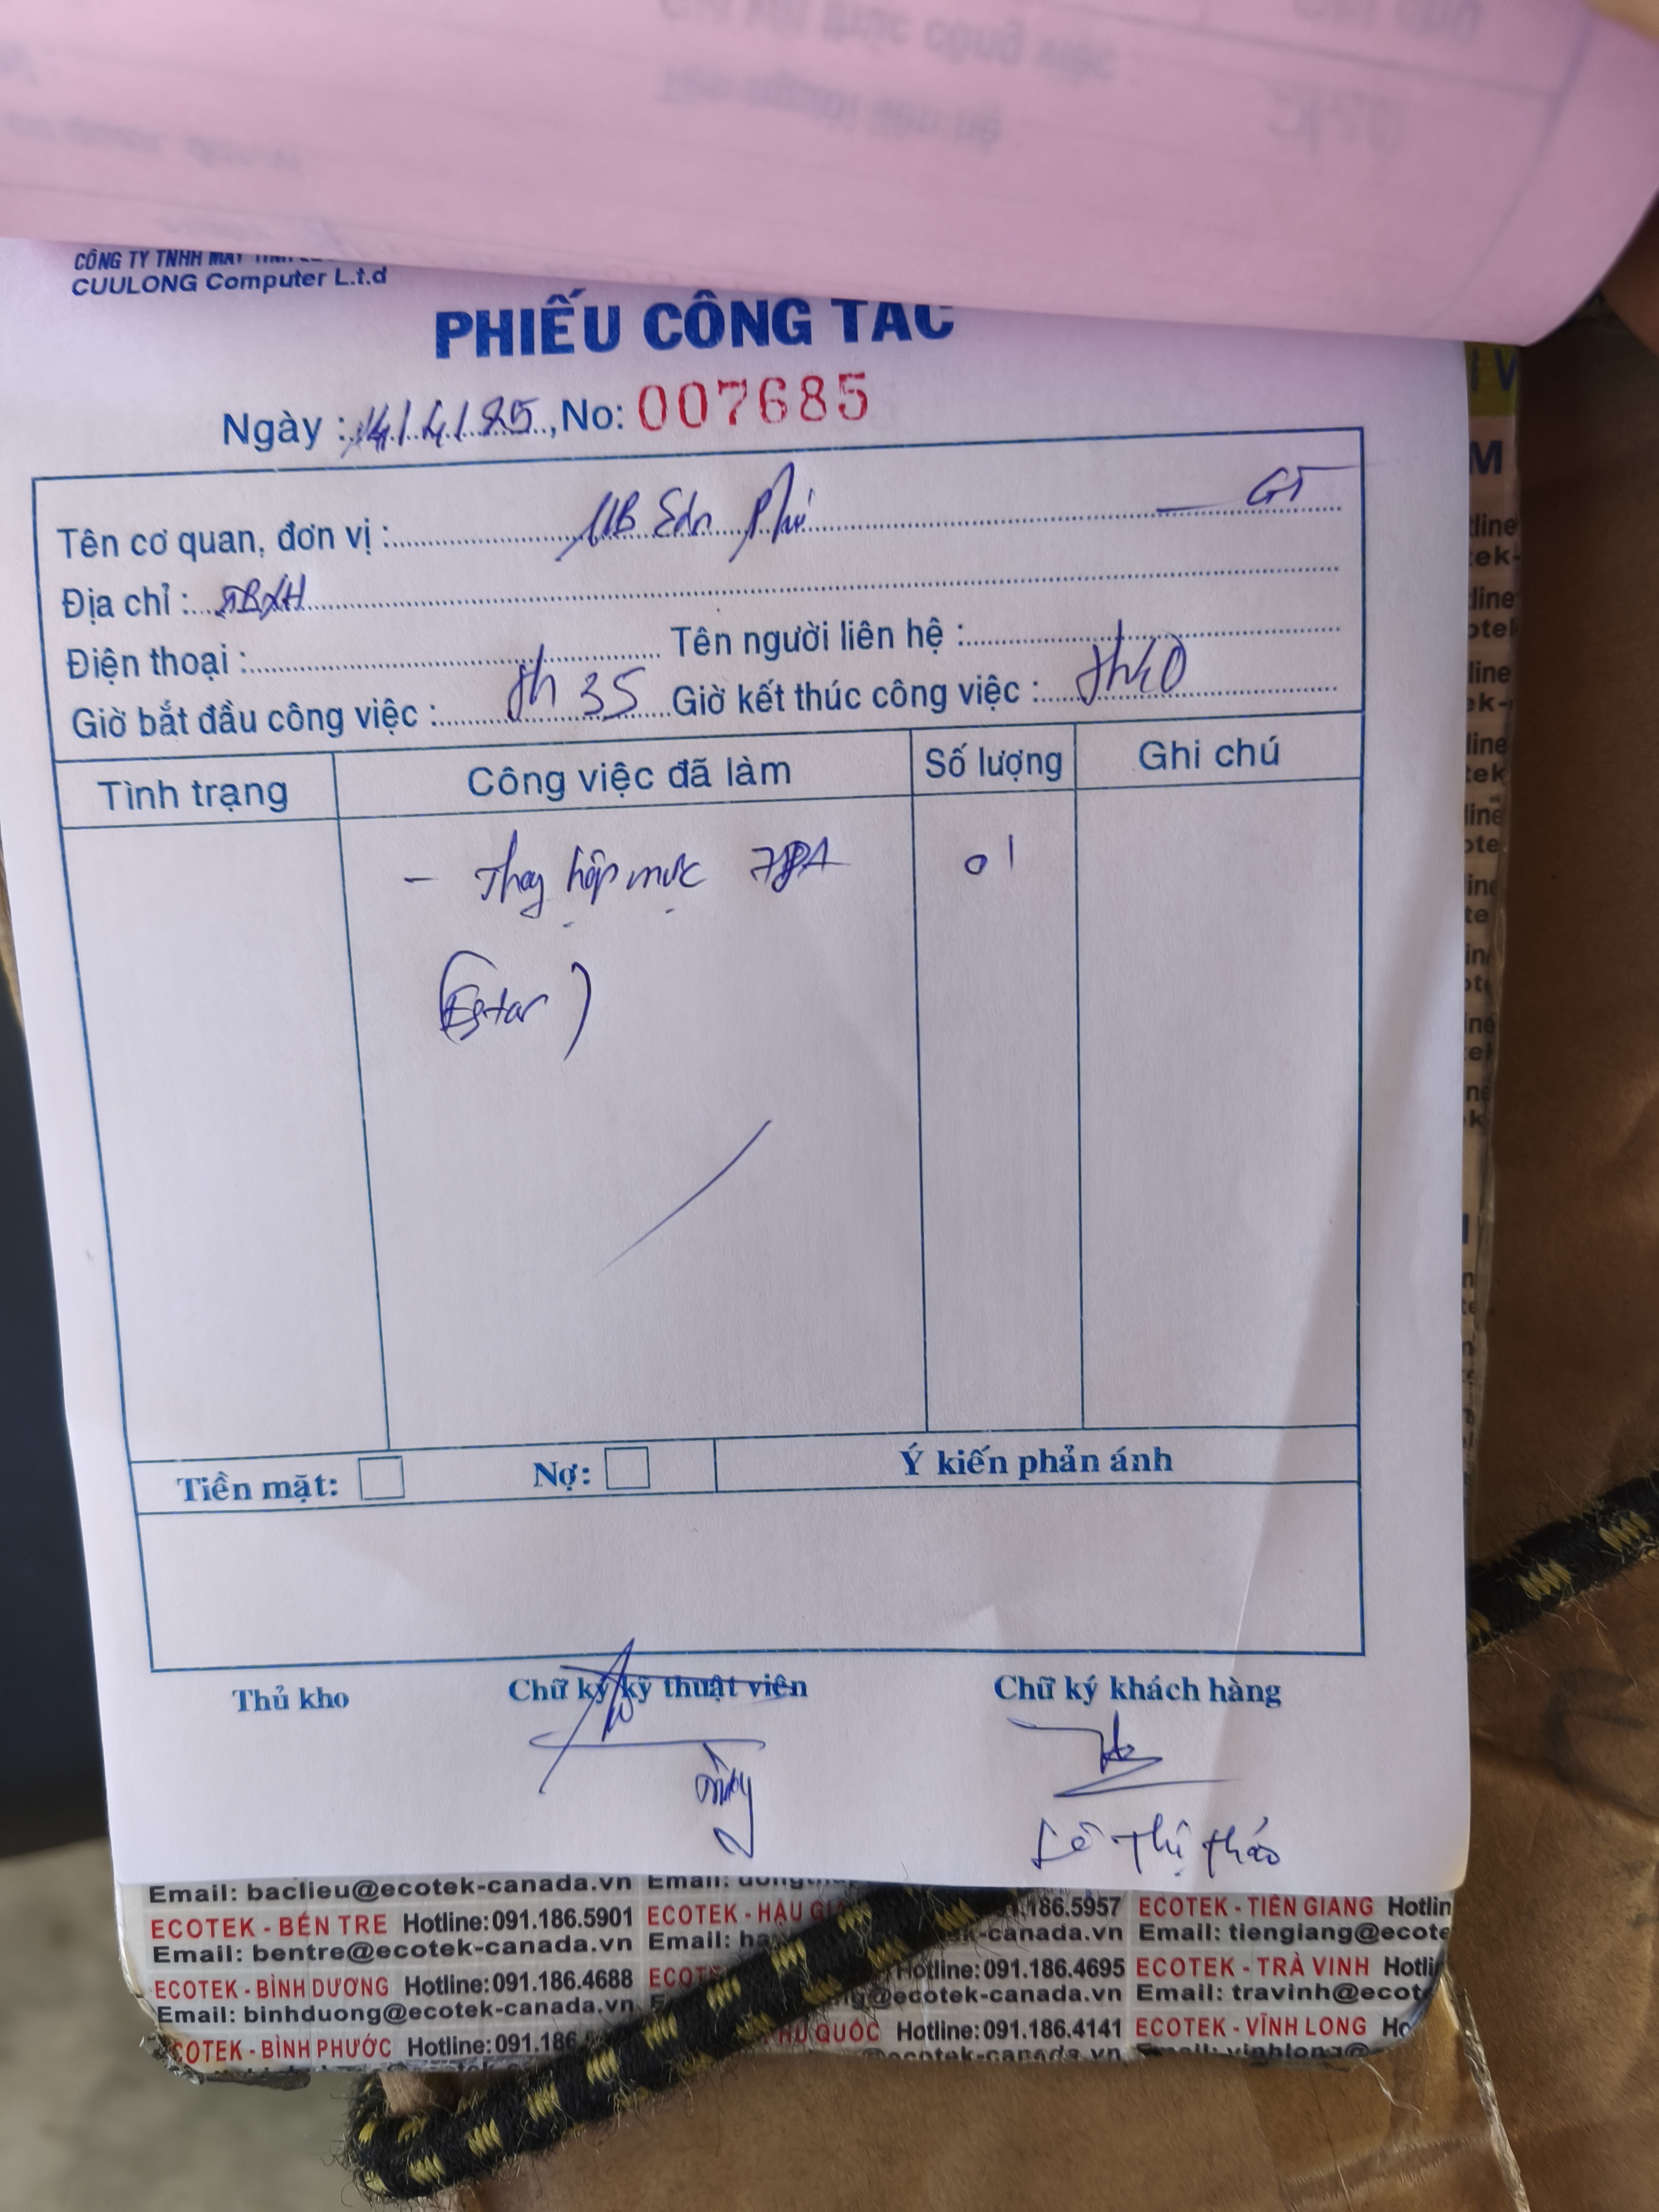 CÔNG TY TNHH MÁY TÍNH
CUULONG Computer L.t.d
PHIẾU CÔNG TÁC
Ngày : 14/4/25, No: 007685
Tên cơ quan, đơn vị : UB Sơn Phú GT
Địa chỉ : TBXH
Điện thoại : Tên người liên hệ :
Giờ bắt đầu công việc : 8h 35 Giờ kết thúc công việc : 8h40
Tình trạng Công việc đã làm Số lượng Ghi chú
- Thay hộp mực 78A 01
(Estar)
Tiền mặt: Nợ: Ý kiến phản ánh
Thủ kho Chữ ký kỹ thuật viên Chữ ký khách hàng
Lê Thị Thảo
Email: baclieu@ecotek-canada.vn Email:
ECOTEK - BẾN TRE Hotline: 091.186.5901 ECOTEK - HẬU GI .186.5957 ECOTEK - TIỀN GIANG Hotlin
Email: bentre@ecotek-canada.vn Email: ha k-canada.vn Email: tiengiang@ecote
ECOTEK - BÌNH DƯƠNG Hotline: 091.186.4688 ECOT Hotline: 091.186.4695 ECOTEK - TRÀ VINH Hotli
Email: binhduong@ecotek-canada.vn g@ecotek-canada.vn Email: travinh@ecot
COTEK - BÌNH PHƯỚC Hotline: 091.186 PHÚ QUỐC Hotline: 091.186.4141 ECOTEK - VĨNH LONG Ho
@ecotek-canada.vn Email: vinhlong@